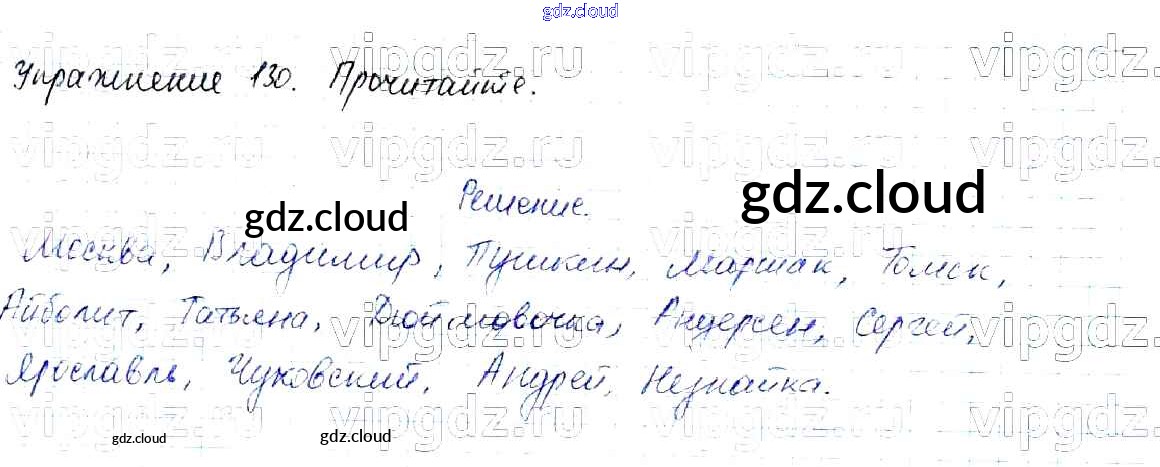 gdz.cloud
vipgdz.ru vipgdz.ru vipgdz.ru vipgdz.ru
Упражнение 130. Прочитайте.
vipgdz.ru vipgdz.ru vipgdz.ru vipgdz.ru
Решение.
gdz.cloud gdz.cloud
Москва, Владимир, Пушкин, Маршак, Томск,
Айболит, Татьяна, Дюймовочка, Андерсен, Сергей,
Ярославль, Чуковский, Андрей, Незнайка.
gdz.cloud gdz.cloud